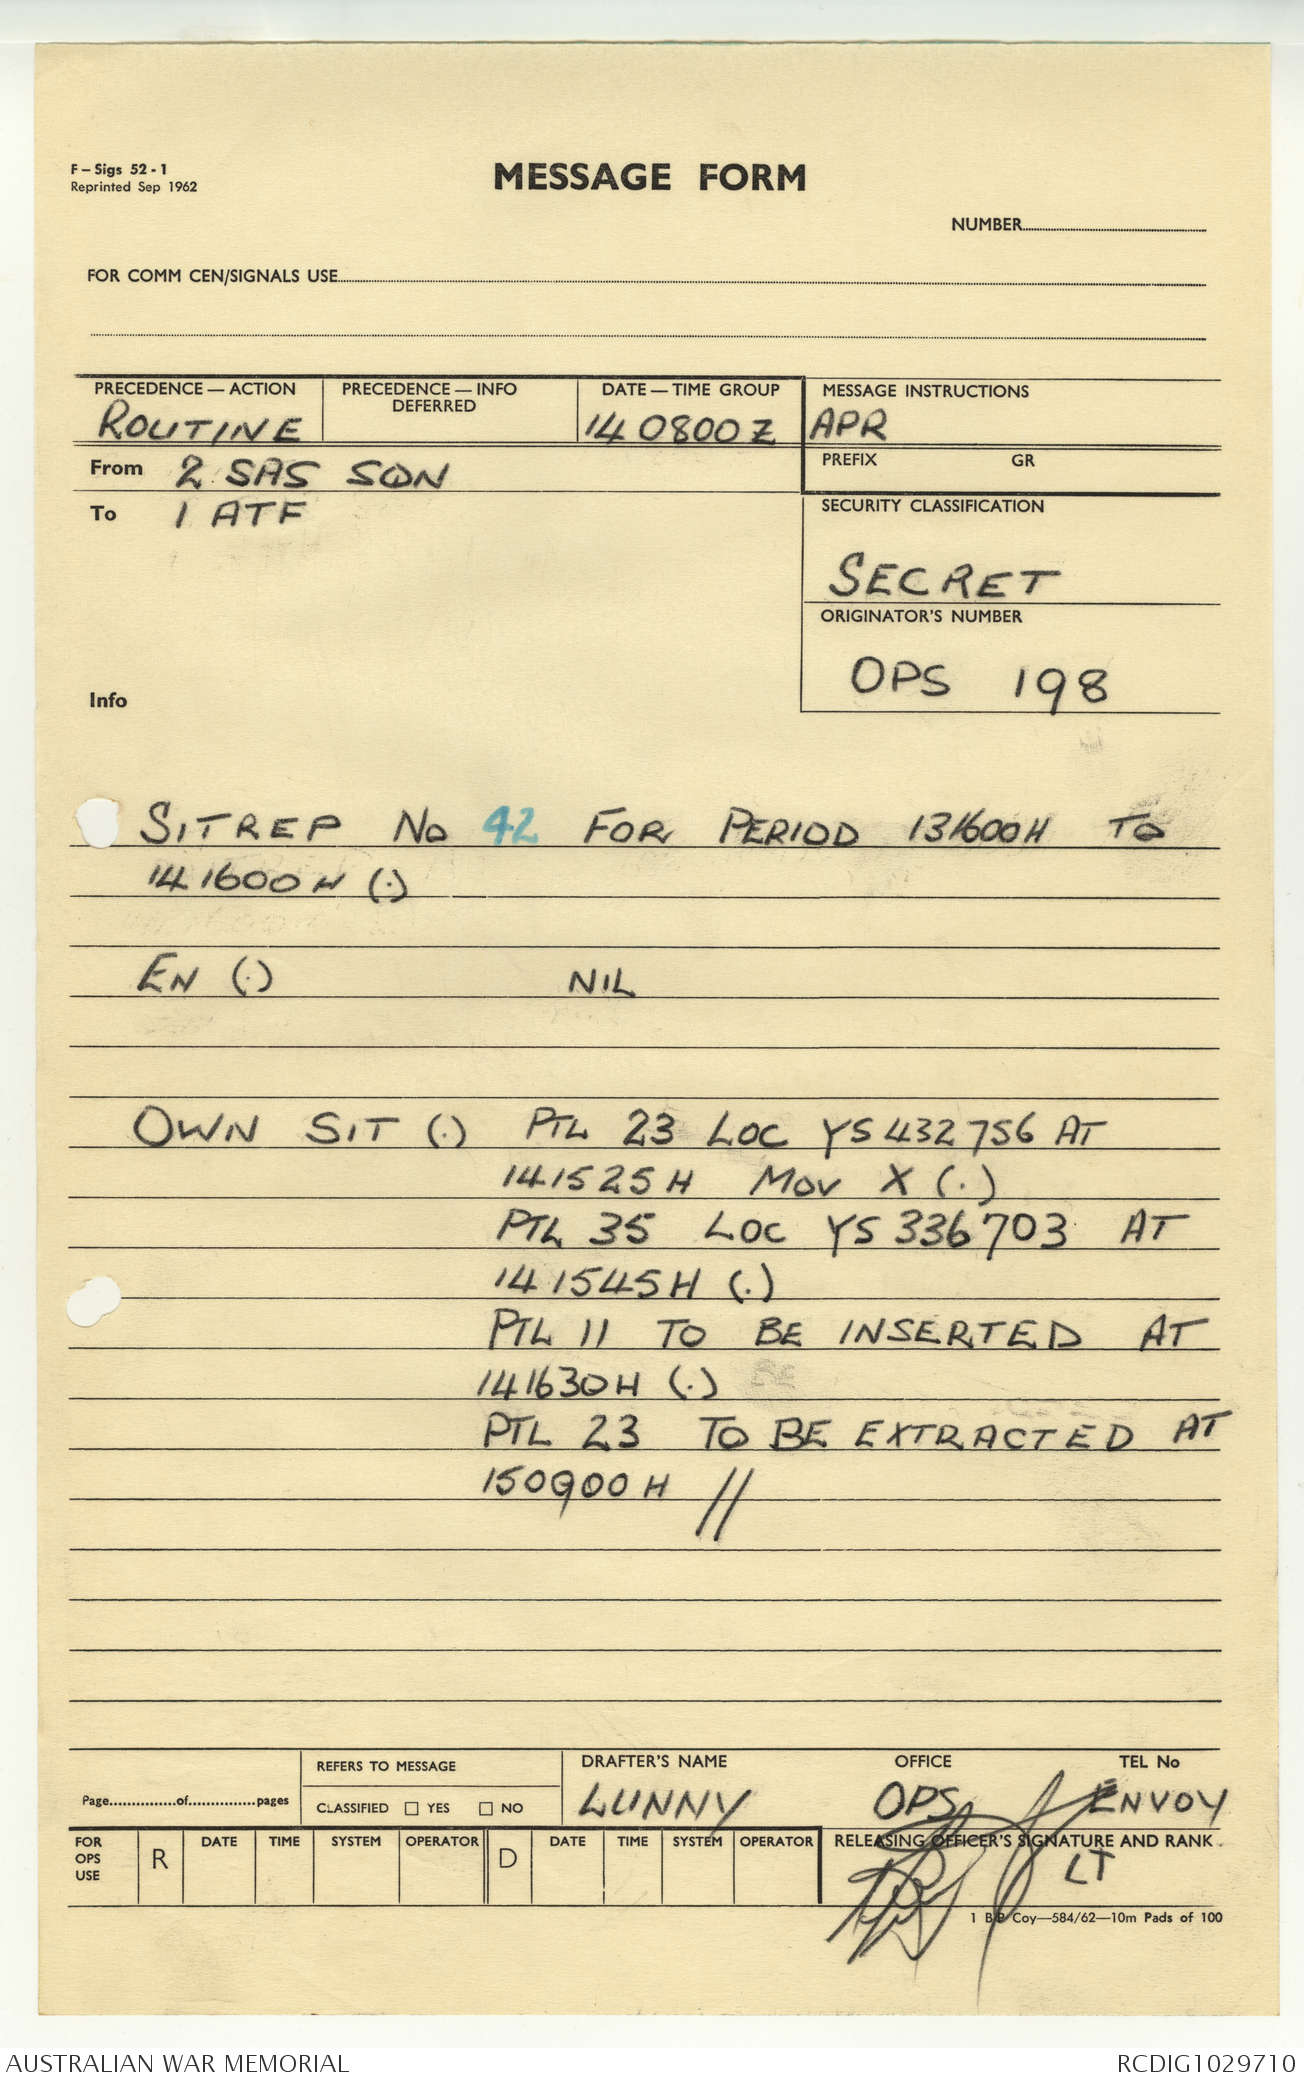 F – Sigs 52 - 1
Reprinted Sep 1962
MESSAGE FORM
NUMBER
FOR COMM CEN/SIGNALS USE
PRECEDENCE — ACTION
ROUTINE
PRECEDENCE — INFO
DEFERRED
DATE — TIME GROUP
140800Z
MESSAGE INSTRUCTIONS
APR
From 2 SAS SQN
PREFIX GR
To 1 ATF
SECURITY CLASSIFICATION
SECRET
ORIGINATOR'S NUMBER
OPS 198
Info
SITREP No 42 FOR PERIOD 131600H TO
141600H (.)
EN (.) NIL
OWN SIT (.) PTL 23 LOC YS 432756 AT
141525H MOV X (.)
PTL 35 LOC YS 336703 AT
141545H (.)
PTL 11 TO BE INSERTED AT
141630H (.)
PTL 23 TO BE EXTRACTED AT
150900H //
Page...............of...............pages
REFERS TO MESSAGE
CLASSIFIED ☐ YES ☐ NO
DRAFTER'S NAME OFFICE TEL No
LUNNY OPS ENVOY
FOR OPS USE
R DATE TIME SYSTEM OPERATOR D DATE TIME SYSTEM OPERATOR
RELEASING OFFICER'S SIGNATURE AND RANK
LT
1 BP Coy—584/62—10m Pads of 100
AUSTRALIAN WAR MEMORIAL RCDIG1029710